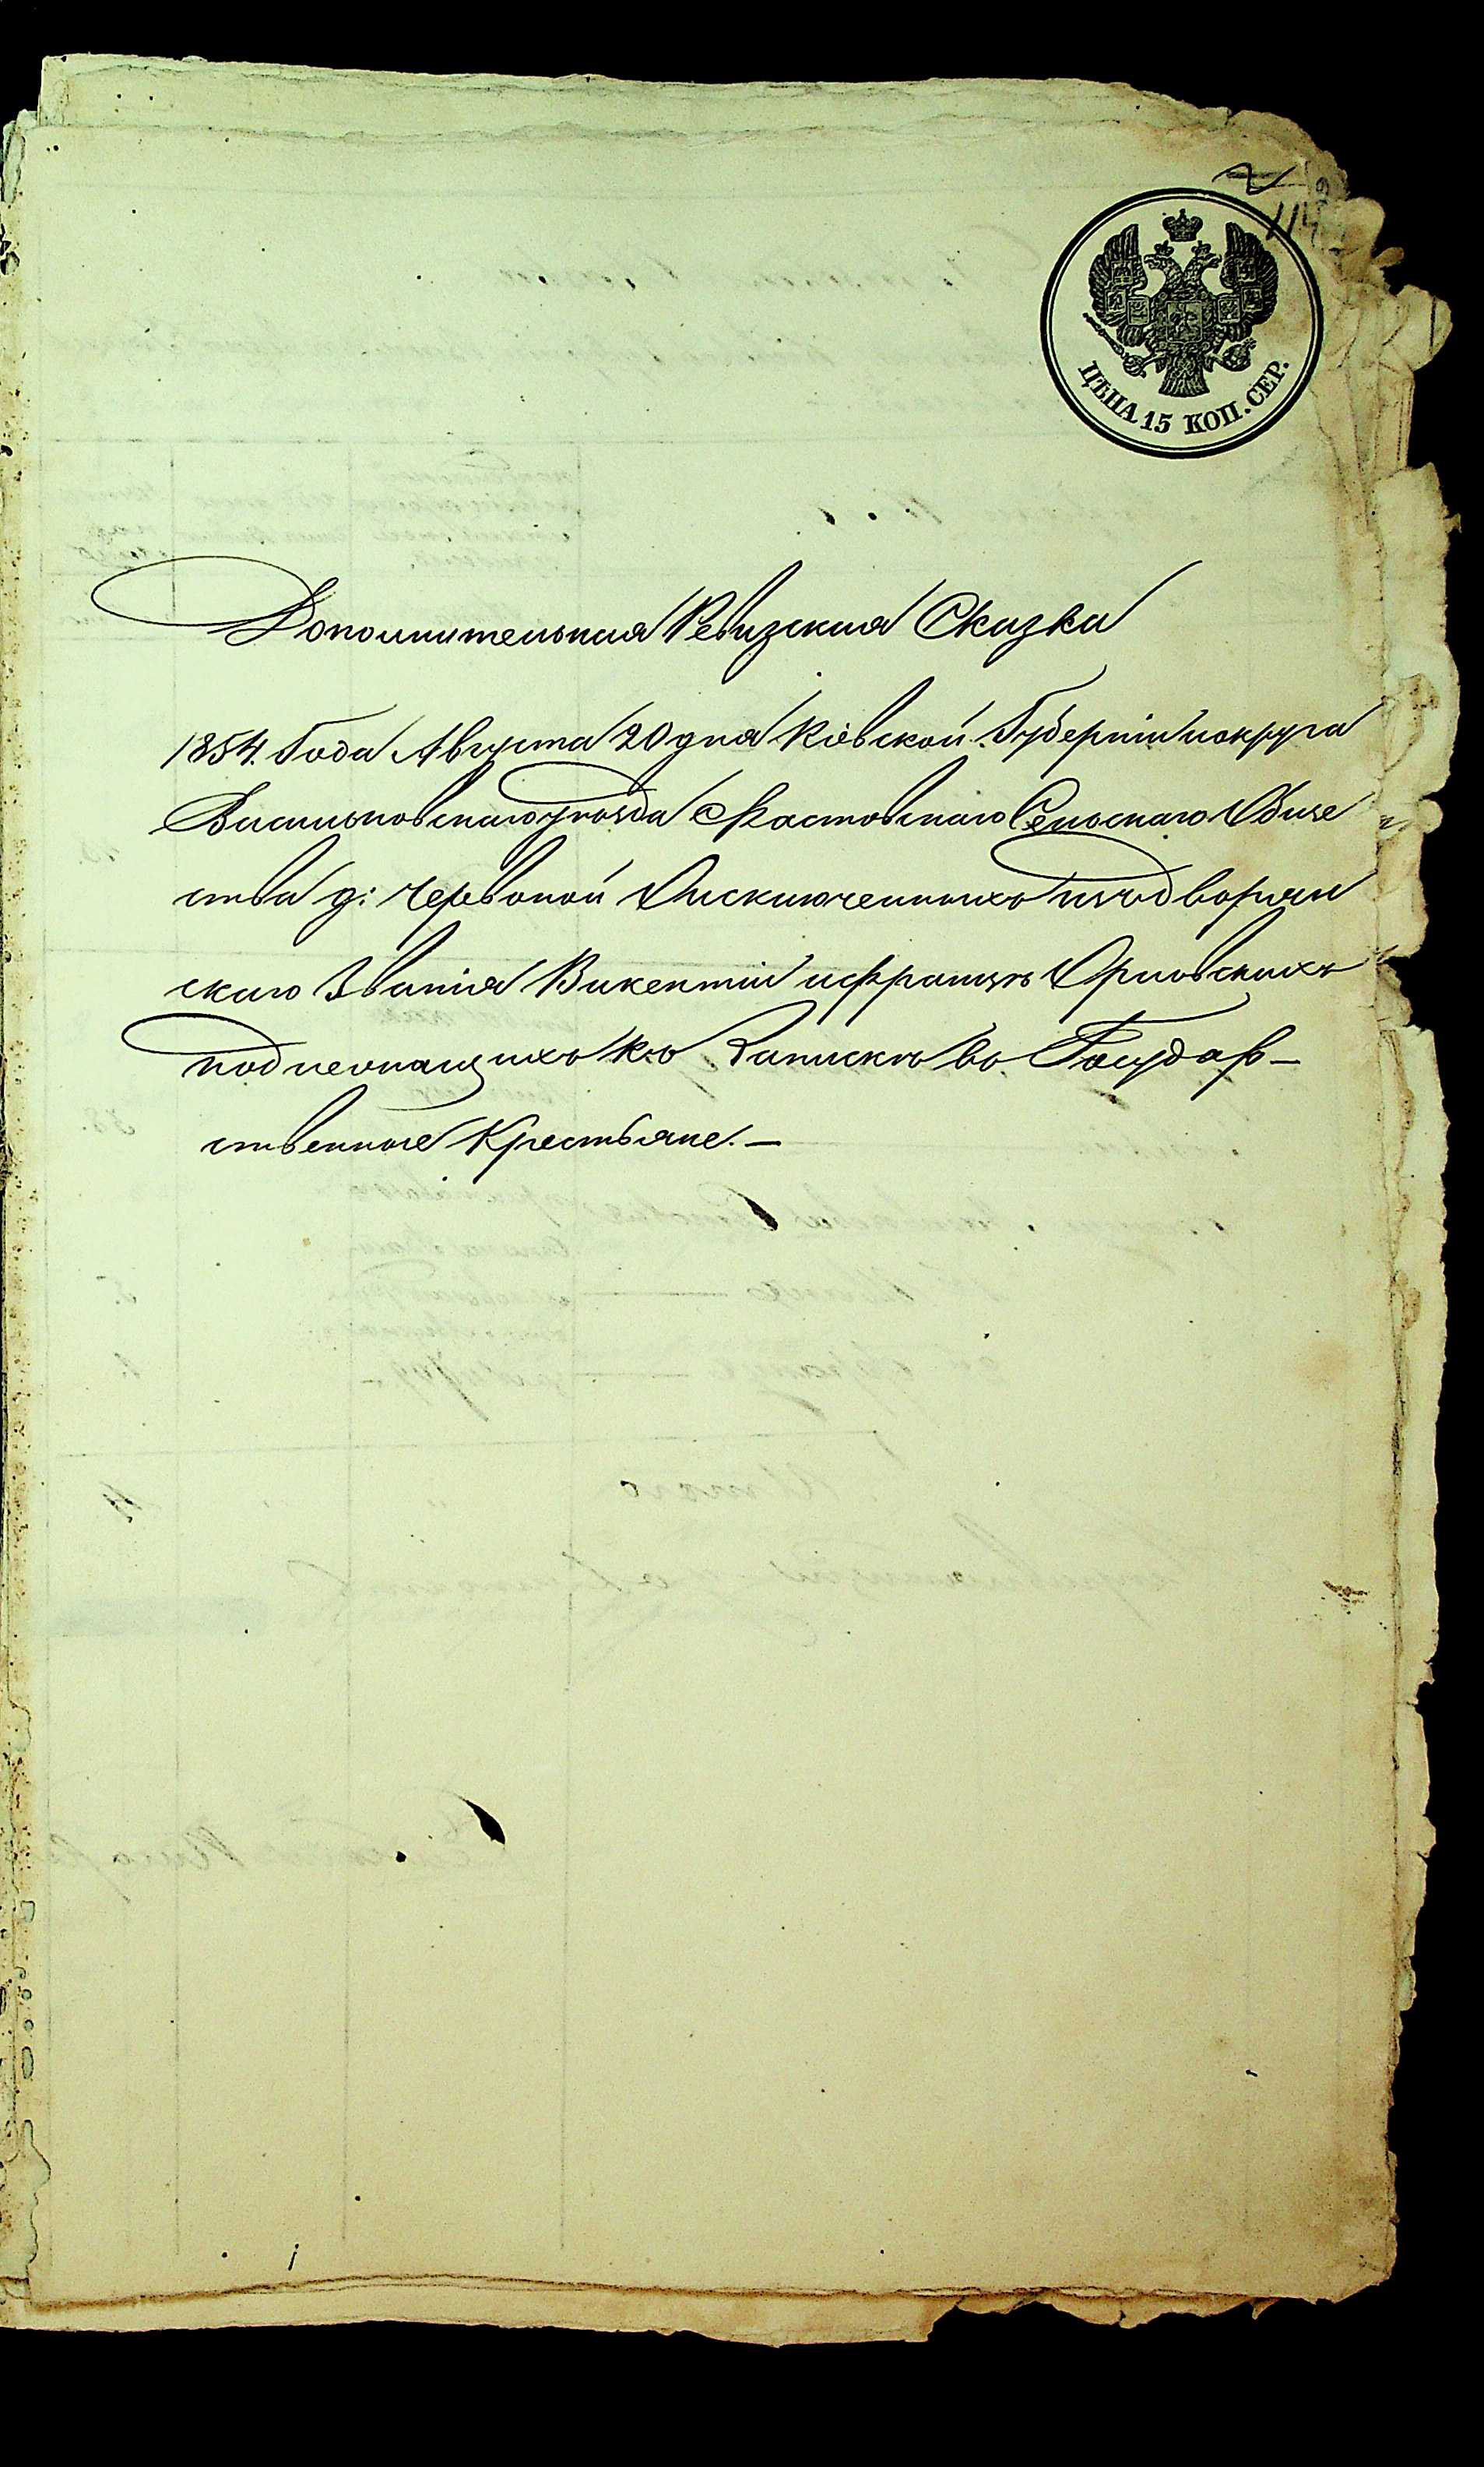 114
ЦѢНА 15 КОП. СЕР.
Дополнительная Ревизская Сказка
1854. Года Августа 20 дня Кіевской Губерніи иокруга
Васильковскаго уѣзда Фастовскаго Сельскаго Обще
ства д: Червоной Оисключенныхъ издворян
скаго Званія Викентіи ифранцѣ Орловскихъ
подлежащихъ къ Запискѣ въ Государ-
ственные Крестьяне. —